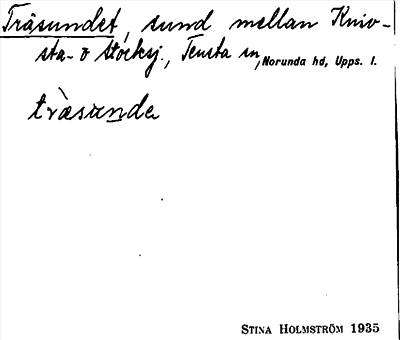 Träsundet, sund mellan Kniv-
sta- o Stocksj., Tensta sn, Norunda hd, Upps. l.
trǽsunde
STINA HOLMSTRÖM 1935